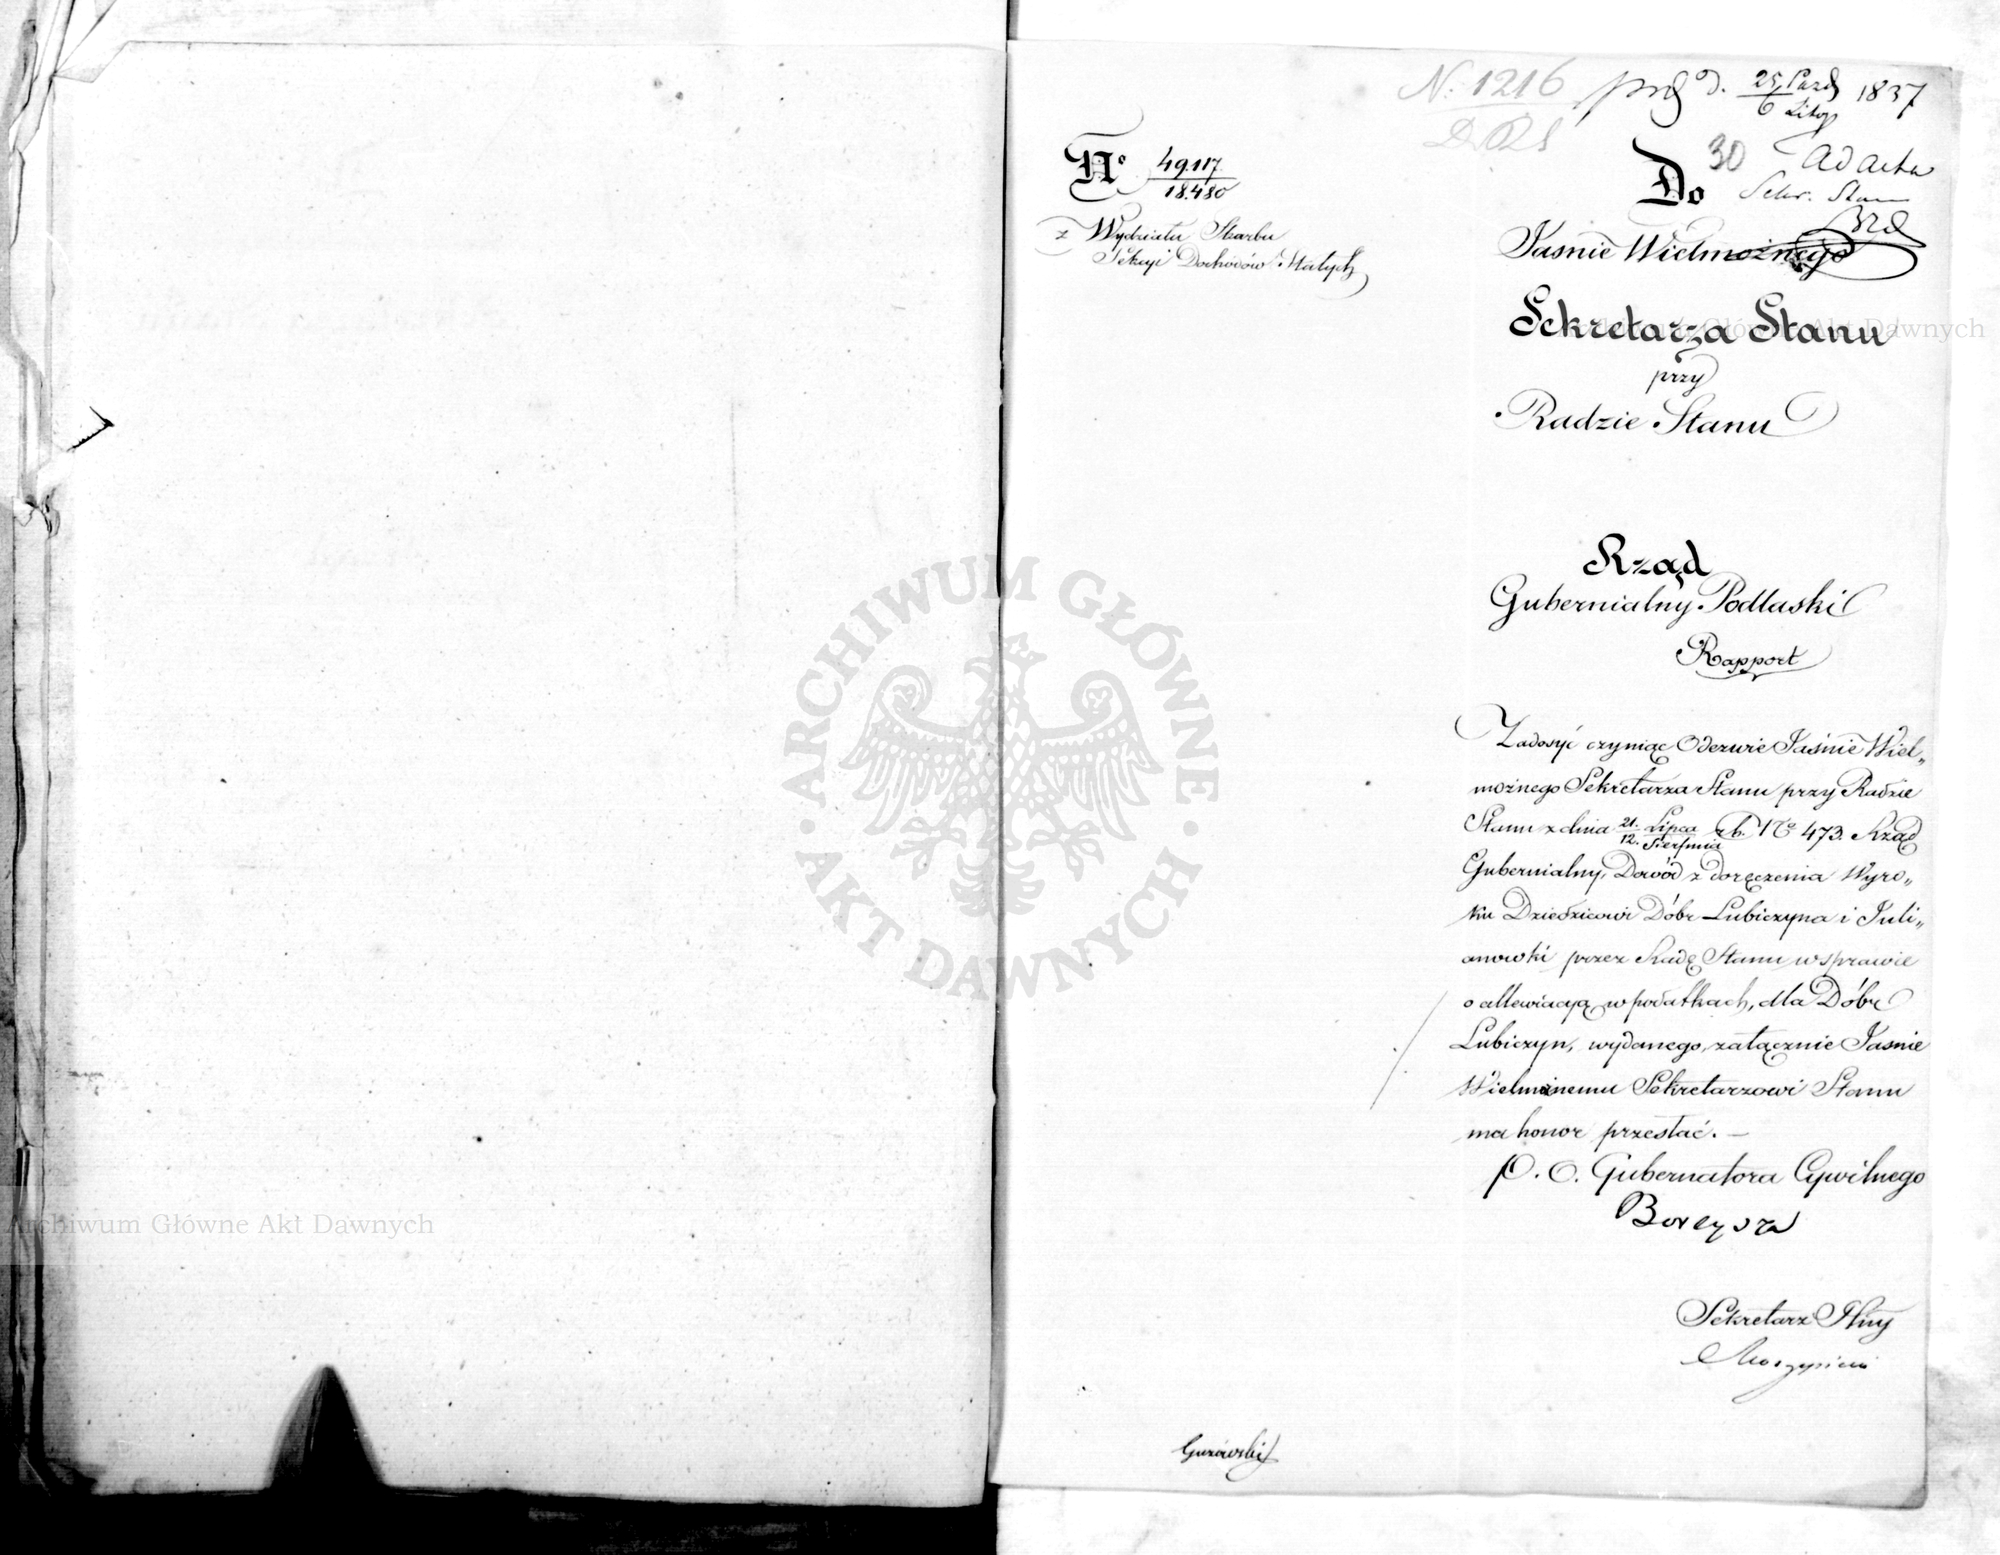 N. 1216
prd d. 25 Paźd 1837
6 Listop
30
Ad acta
Sekr. Stanu
Nº 49.117
18.480
z Wydziału Skarbu
Sekcyi Dochodów Stałych
Do
Jaśnie Wielmożnego
Sekretarza Stanu
przy
Radzie Stanu
Rząd
Gubernialny Podlaski
Rapport
Zadosyć czyniąc Odezwie Jaśnie Wiel„
możnego Sekretarza Stanu przy Radzie
Stanu z dnia 21. Lipca r. b. Nº 473. Rząd
12. Sierpnia
Gubernialny, Dowód z doręczenia Wyro„
ku Dziedzicowi Dóbr Lubiczyna i Juli„
anowki przez Radę Stanu w sprawie
o allewiacyą w podatkach, dla Dóbr
Lubiczyn, wydanego, załącznie Jaśnie
Wielmożnemu Sekretarzowi Stanu
ma honor przesłać. —
P. O. Gubernatora Cywilnego
Sekretarz Jlny
Gurowski
ARCHIWUM GŁÓWNE AKT DAWNYCH
Archiwum Główne Akt Dawnych
Archiwum Główne Akt Dawnych